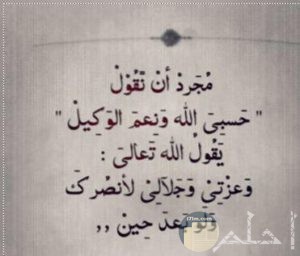 مُجَرد أنْ تَقُوْلْ
" حَسبِيَ الله وَنِعمَ الوَكِيلْ "
يَقُولُ الله تَعالىَ :
وَعزْتيِ وَجَلآلِيْ لأنصُركَ
وَلَو بَعدَ حِينْ ,,
أحلم